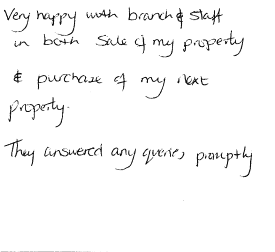 Very happy with branch & staff
in both Sale of my property
& purchase of my next
property.
They answered any queries promptly